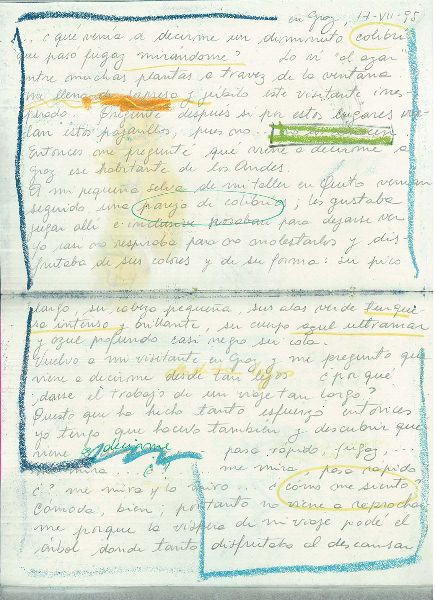 en Graz, 17-VII-95
.. ¿qué venía a decirme un diminuto colibrí
que pasó fugaz mirandome? Lo vi "al azar"
entre muchas plantas a travez de la ventana
me llenó de sorpresa y júbilo este visitante ines-
perado. Pregunté despues si por estos lugares vue-
lan estos pajarillos, pues no...
Entonces me pregunté qué viene a decirme a
Graz ese habitante de los Andes.
A mi pequeña selva de mi taller en Quito venían
seguido una pareja de colibríes, les gustaba
jugar allí e inclusive posaban para dejarse ver
yo casi no respiraba para no molestarlos y dis-
frutaba de sus colores y de su forma: su pico
largo, su cabeza pequeña, sus alas verde turque
sa intenso y brillante, su cuerpo azul ultramar
y azul profundo casi negro su cola.
Vuelvo a mi visitante en Graz y me pregunto que
viene a decirme desde tan lejos ¿por qué
darse el trabajo de un viaje tan largo?
Puesto que ha hecho tanto esfuerzo entonces
yo tengo que hacerlo también y descubrir que
viene a decirme pasa rápido, fugaz, ...
me mira .. ¿ me mira .. pasa rapido
¿? me mira y lo miro ... ¿como me siento?
Cómoda, bien, portanto no viene a reprochar
me porque la víspera de mi viaje podé el
árbol donde tanto disfrutaba al descansar